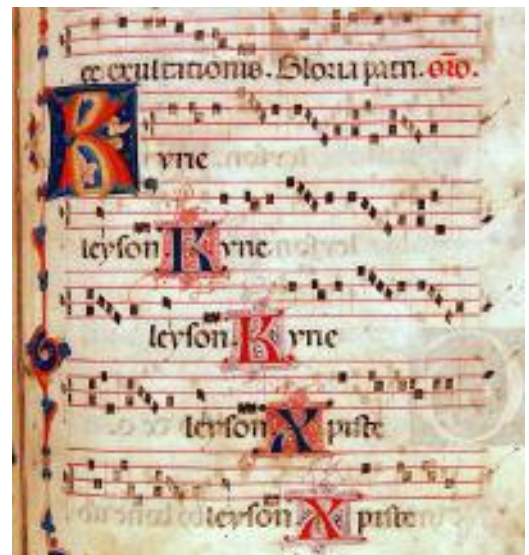 et exultationis. Gloria patri.
Kyrie
leyson. Kyrie
leyson. Kyrie
leyson. Xpiste
leyson. Xpiste